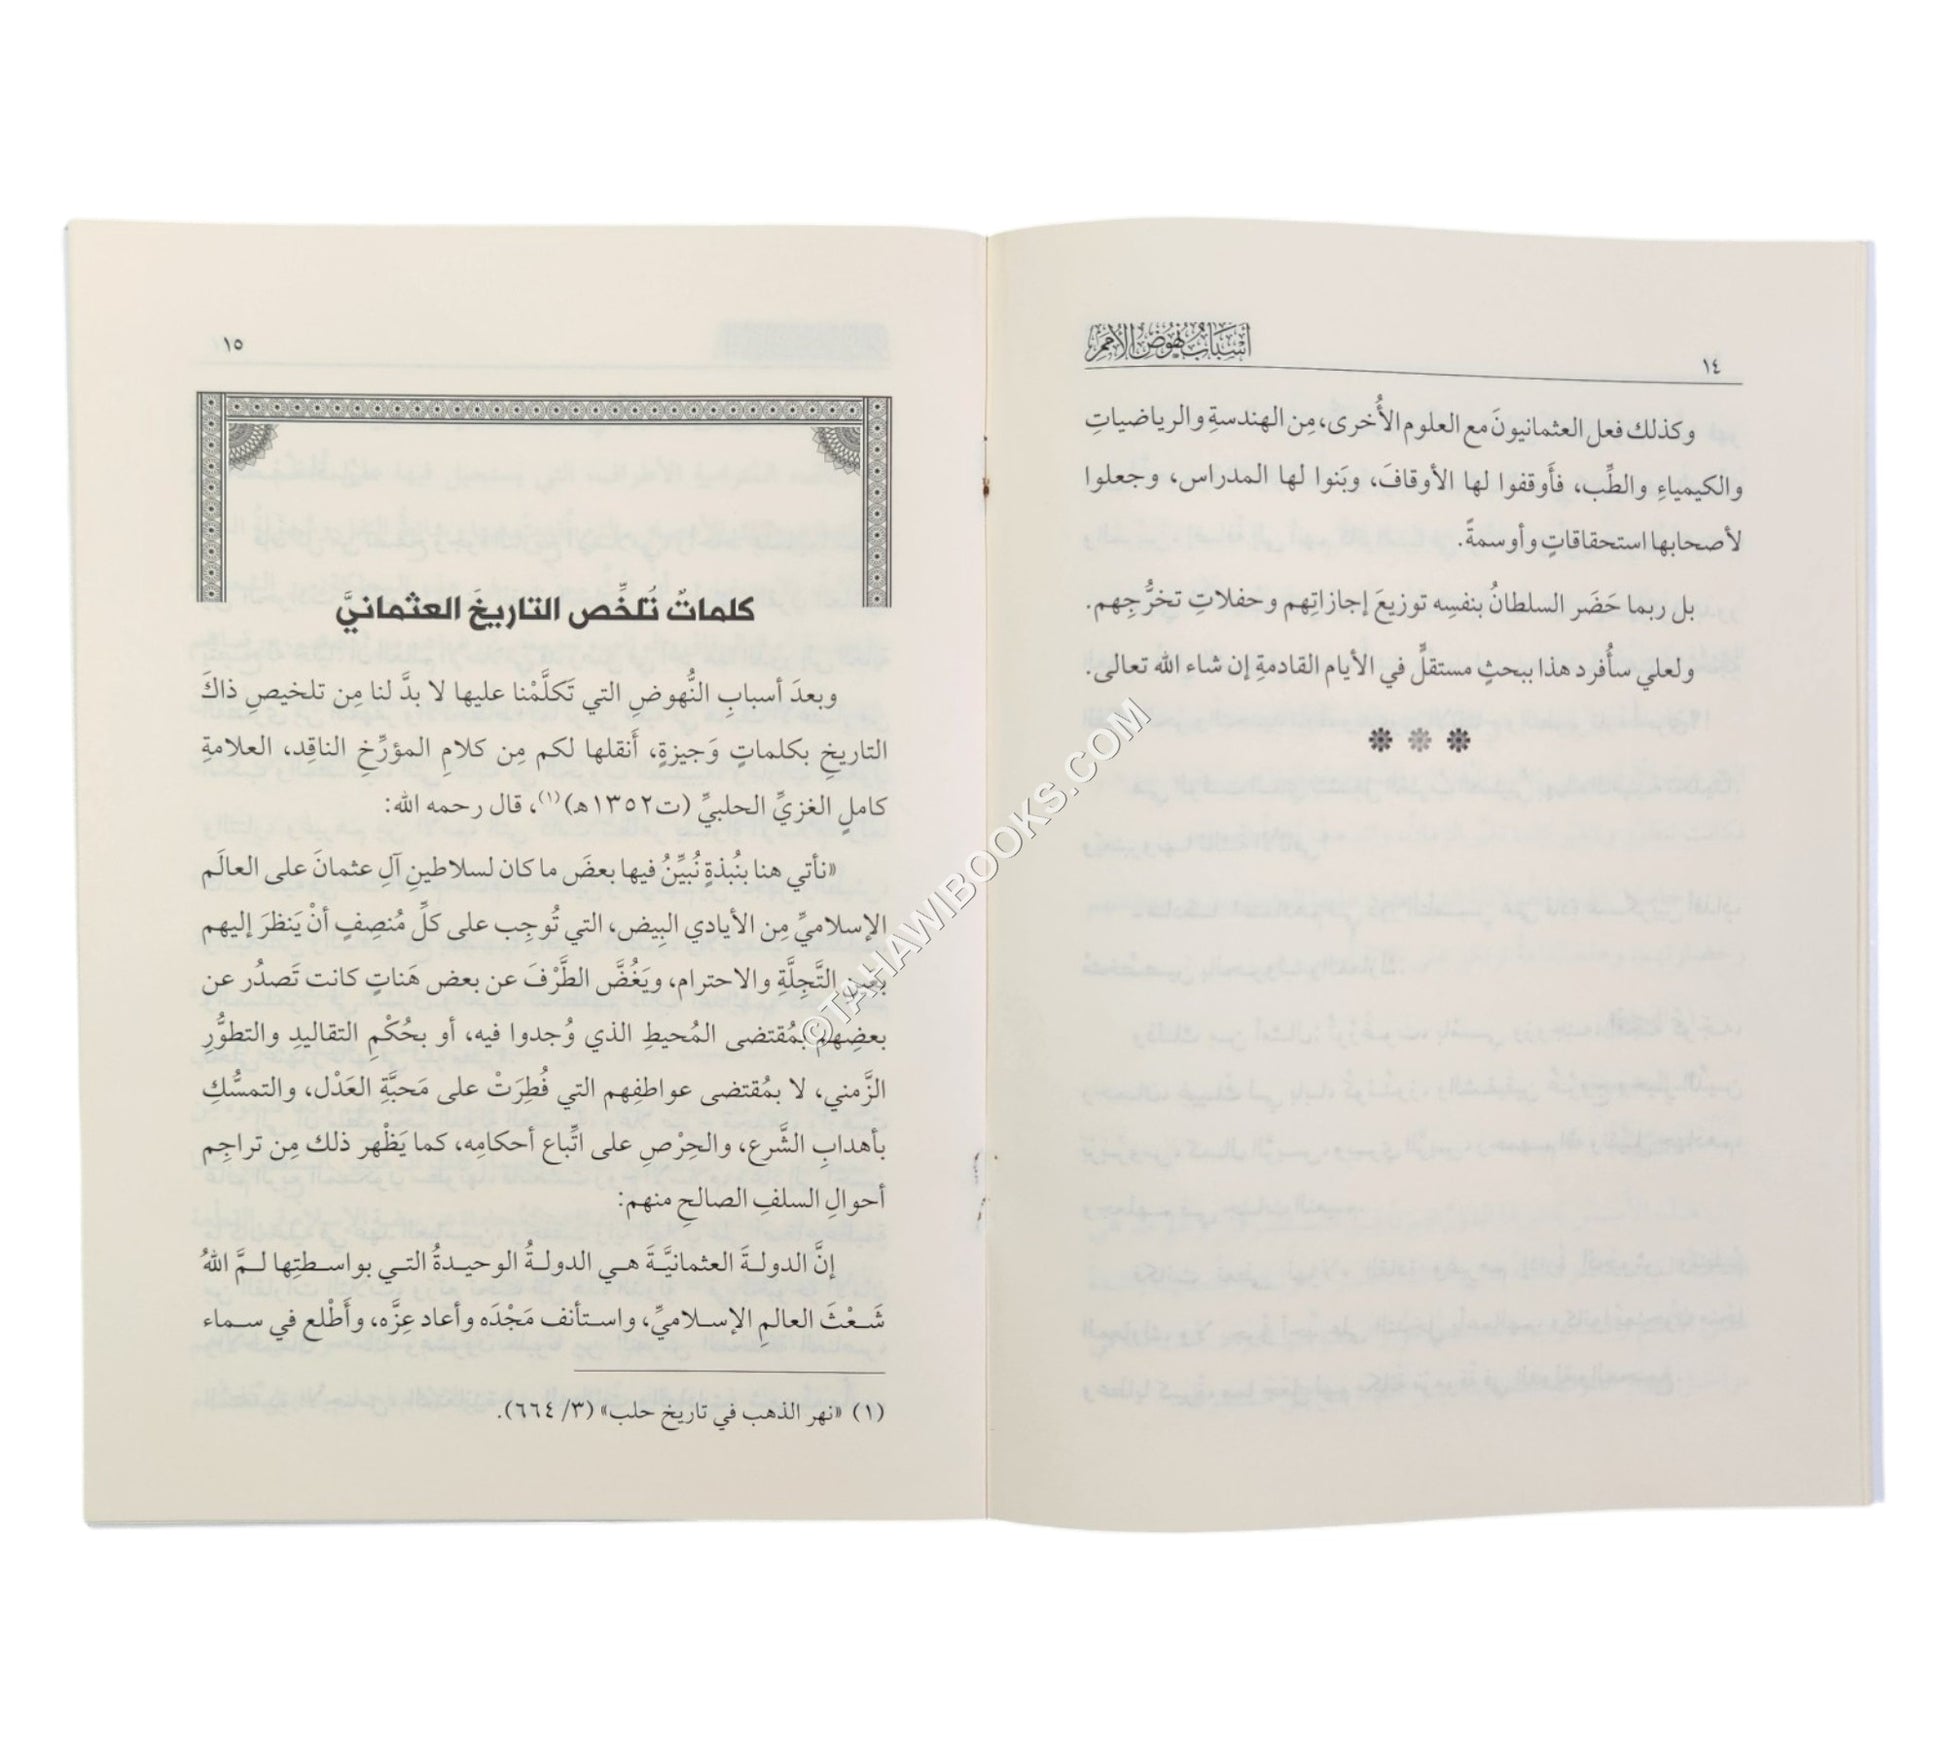 أسباب نهوض الأمم
١٤
وكذلك فعل العثمانيونَ مع العلوم الأُخرى، مِن الهندسةِ والرياضياتِ
والكيمياءِ والطِّب، فأَوقفوا لها الأوقافَ، وبَنوا لها المدراس، وجعلوا
لأصحابها استحقاقاتٍ وأوسمةً.
بل ربما حَضَر السلطانُ بنفسِه توزيعَ إجازاتِهم وحفلاتِ تخرُّجِهم.
ولعلي سأُفرد هذا ببحثٍ مستقلٍّ في الأيام القادمةِ إن شاء الله تعالى.
١٥
كلماتٌ تُلخِّص التاريخَ العثمانيَّ
وبعدَ أسبابِ النُّهوضِ التي تَكلَّمْنا عليها لا بدَّ لنا مِن تلخيصِ ذاكَ
التاريخِ بكلماتٍ وَجيزةٍ، أَنقلها لكم مِن كلامِ المؤرِّخِ الناقِد، العلامةِ
كاملٍ الغزيِّ الحلبيِّ (ت١٣٥٢هـ)(١)، قال رحمه الله:
«نأتي هنا بنُبذةٍ نُبيِّنُ فيها بعضَ ما كان لسلاطينِ آلِ عثمانَ على العالَم
الإسلاميِّ مِن الأيادي البِيض، التي تُوجِب على كلِّ مُنصِفٍ أنْ يَنظرَ إليهم
بعينِ التَّجِلَّةِ والاحترام، ويَغُضَّ الطَّرْفَ عن بعض هَناتٍ كانت تَصدُر عن
بعضِهم بمُقتضى المُحيطِ الذي وُجدوا فيه، أو بحُكْمِ التقاليدِ والتطوُّرِ
الزَّمني، لا بمُقتضى عواطفِهم التي فُطِرَتْ على مَحبَّةِ العَدْل، والتمسُّكِ
بأهدابِ الشَّرع، والحِرْصِ على اتِّباع أحكامِه، كما يَظْهر ذلك مِن تراجِم
أحوالِ السلفِ الصالحِ منهم:
إنَّ الدولةَ العثمانيَّةَ هي الدولةُ الوحيدةُ التي بواسطتِها لمَّ اللهُ
شَعْثَ العالمِ الإسلاميِّ، واستأنف مَجْدَه وأعاد عِزَّه، وأَطْلع في سماء
(١) «نهر الذهب في تاريخ حلب» (٣/ ٦٦٤).
©TAHAWIBOOKS.COM